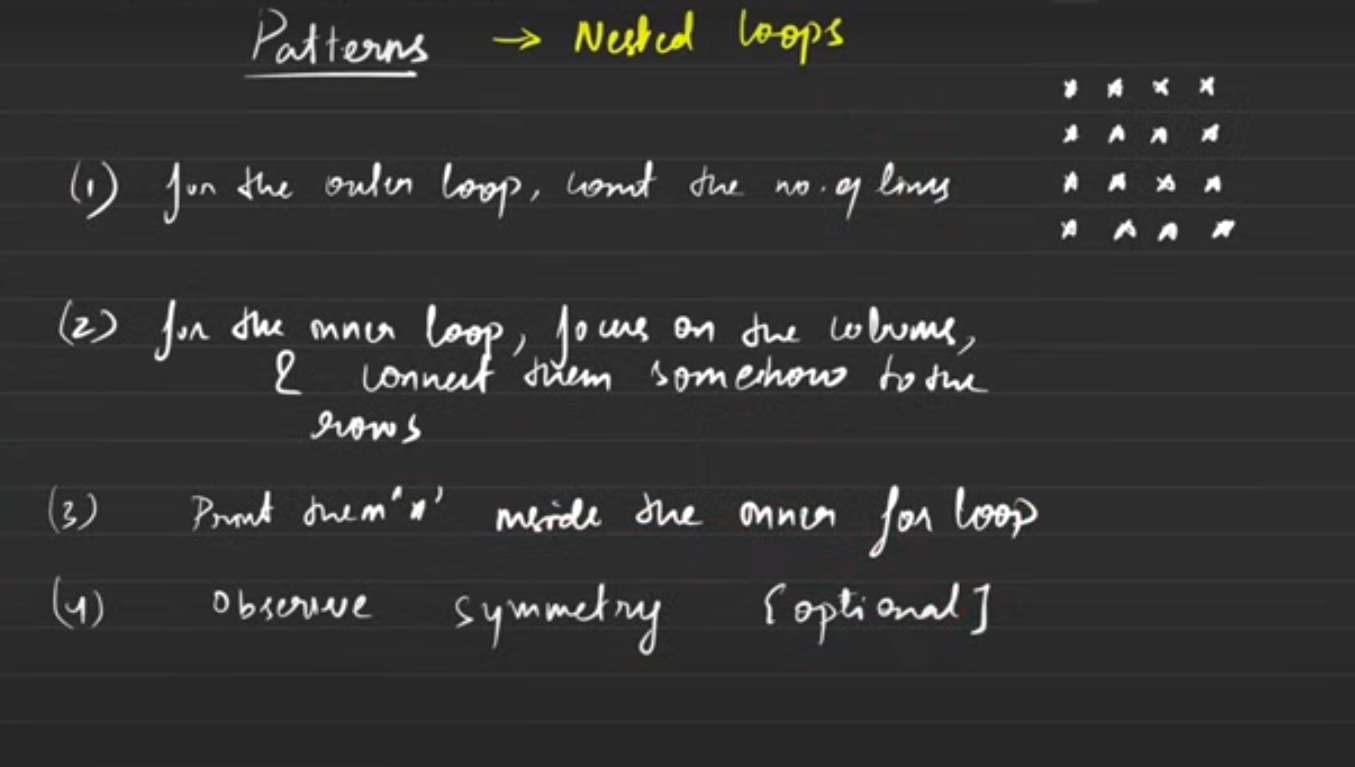 Patterns → Nested loops
* * * *
* * * *
(1) for the outer loop, count the no. of lines
* * * *
* * * *
(2) for the inner loop, focus on the columns,
& connect them somehow to the
rows
(3) Print them '*' inside the inner for loop
(4) Observe symmetry [optional]